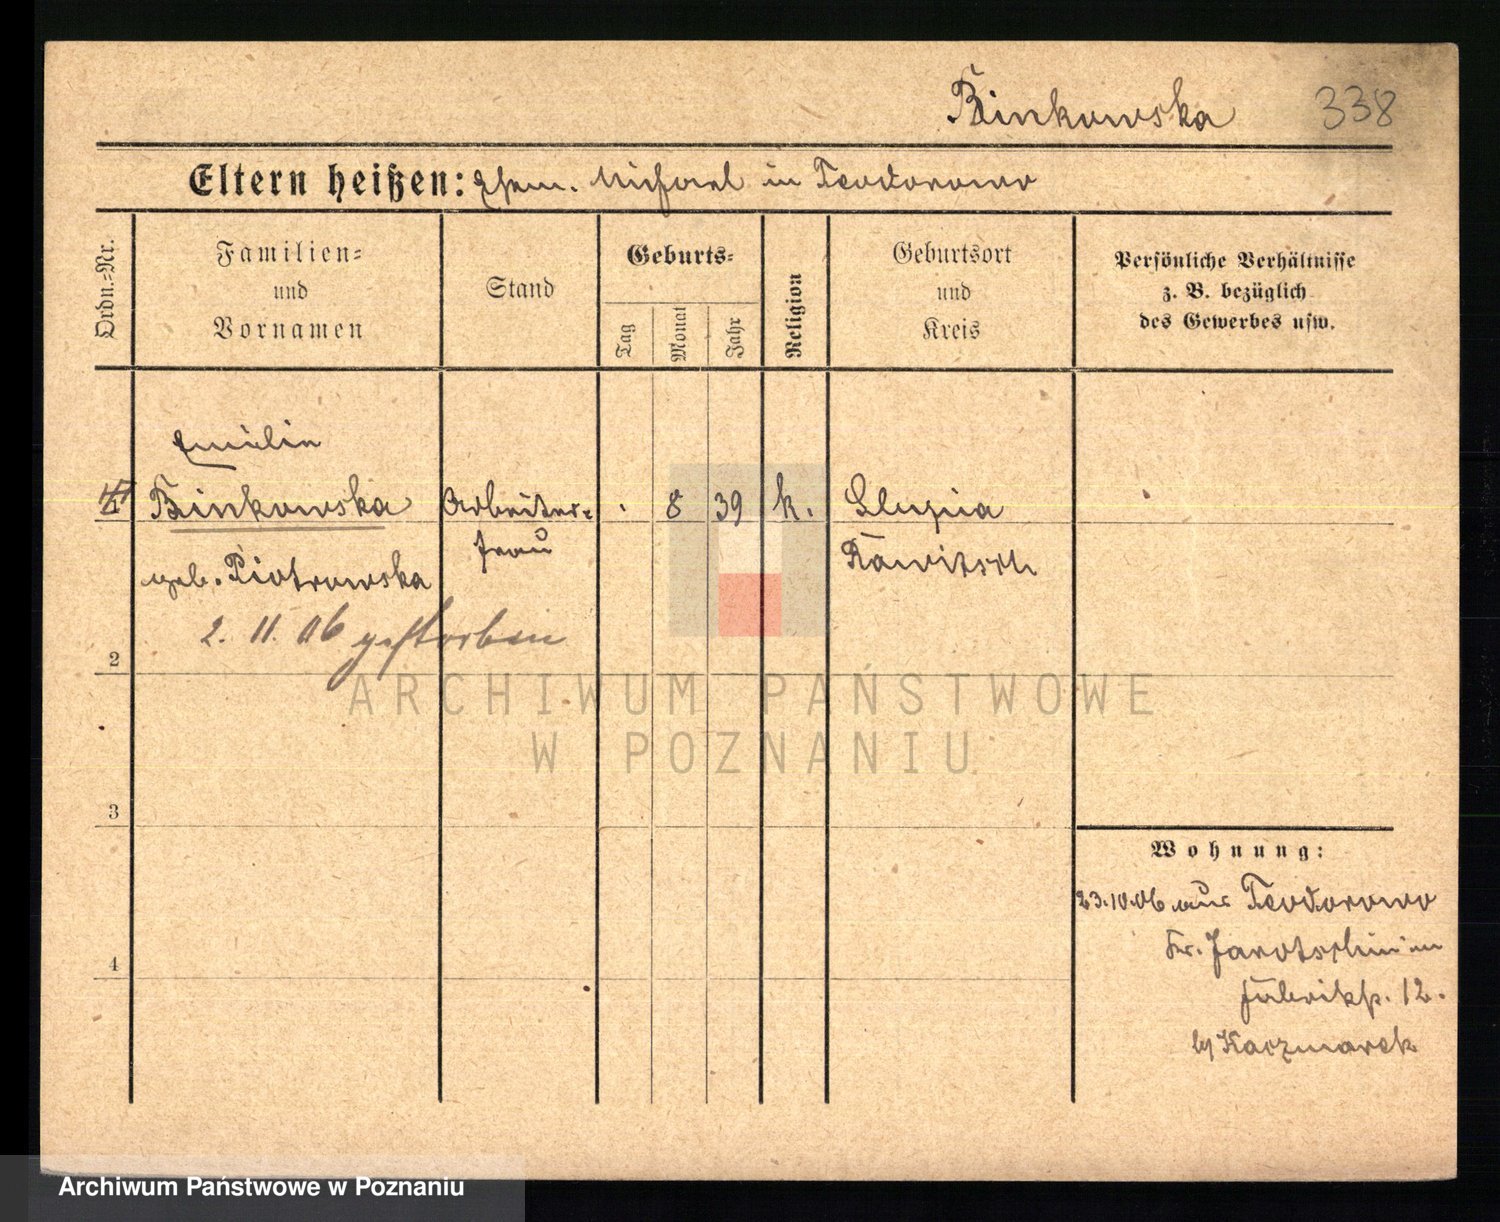 Binkowska 338
Eltern heißen: Ehem. Michael in Teodorowo
Ordn.-Nr.
Familien-
und
Vornamen
Stand
Geburts-
Tag
Monat
Jahr
Religion
Geburtsort
und
Kreis
Persönliche Verhältnisse
z. B. bezüglich
des Gewerbes usw.
Emilie
Binkowska Arbeiter- 8 39 k. Slupia
frau Rawitsch
geb. Piotrowska
2. 11. 06 gestorben
2
3
4
Wohnung:
23.10.06 aus Teodorowo
Kr. Jarotschin
Fabrikstr. 12.
b/ Kaczmarek
ARCHIWUM PAŃSTWOWE
W POZNANIU
Archiwum Państwowe w Poznaniu